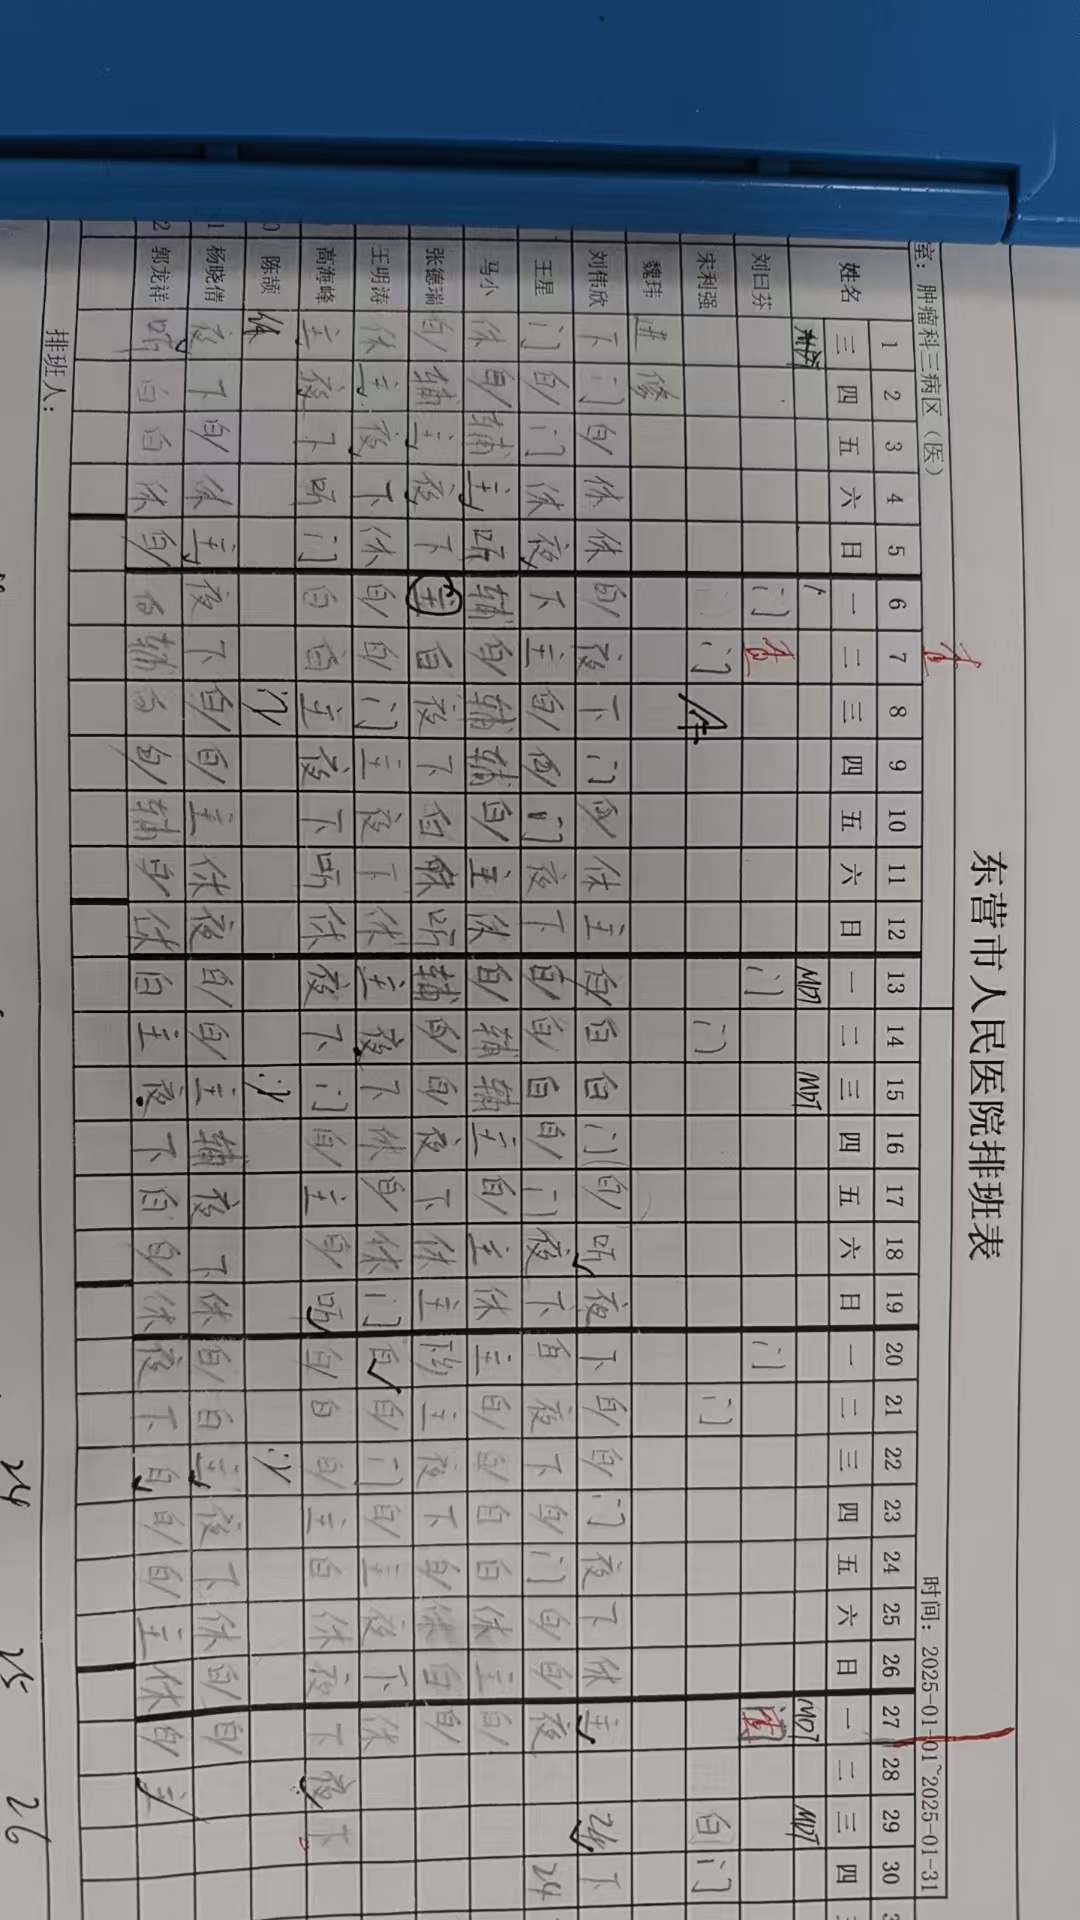 东营市人民医院排班表
室：肿瘤科三病区（医） 时间：2025-01-01~2025-01-31
姓名 1 2 3 4 5 6 7 8 9 10 11 12 13 14 15 16 17 18 19 20 21 22 23 24 25 26 27 28 29 30
三 四 五 六 日 一 二 三 四 五 六 日 一 二 三 四 五 六 日 一 二 三 四 五 六 日 一 二 三 四
MDT MDT MDT MDT
刘曰芬 门 门 门
宋利强 门 门 门 白 门
魏玮 进 修
刘伟欣 下 门 白 休 休 白 夜 下 门 白 休 主 白 白 白 门 白 听 夜 下 白 白 门 夜 下 休 主 24 下
王星 门 白 门 休 夜 下 主 白 白 门 夜 下 白 白 白 白 门 夜 下 白 夜 下 白 门 白 白 夜 24
马小 休 白 辅 主 听 辅 白 辅 辅 白 主 休 白 辅 辅 主 白 主 休 主 白 白 白 白 休 主 白
张德瑞 白 辅 主 夜 下 白 夜 下 白 休 听 辅 白 白 夜 下 休 主 主 夜 下 白 休 白 白
王明涛 休 主 夜 下 休 白 白 门 主 夜 下 休 主 夜 下 休 白 休 门 白 白 门 白 主 夜 下 休
高海峰 主 夜 下 听 门 白 白 主 夜 下 听 休 夜 下 门 白 主 白 听 白 白 白 主 白 休 夜 下 夜 下
陈颉 休
杨晓倩 夜 下 白 休 主 夜 下 白 白 主 休 夜 白 白 主 辅 夜 下 休 白 白 主 夜 下 休 白 白
郭龙祥 听 白 白 休 白 白 辅 白 白 辅 白 休 白 主 夜 下 白 白 休 夜 下 白 白 白 主 休 白 主
排班人：
24 25 26